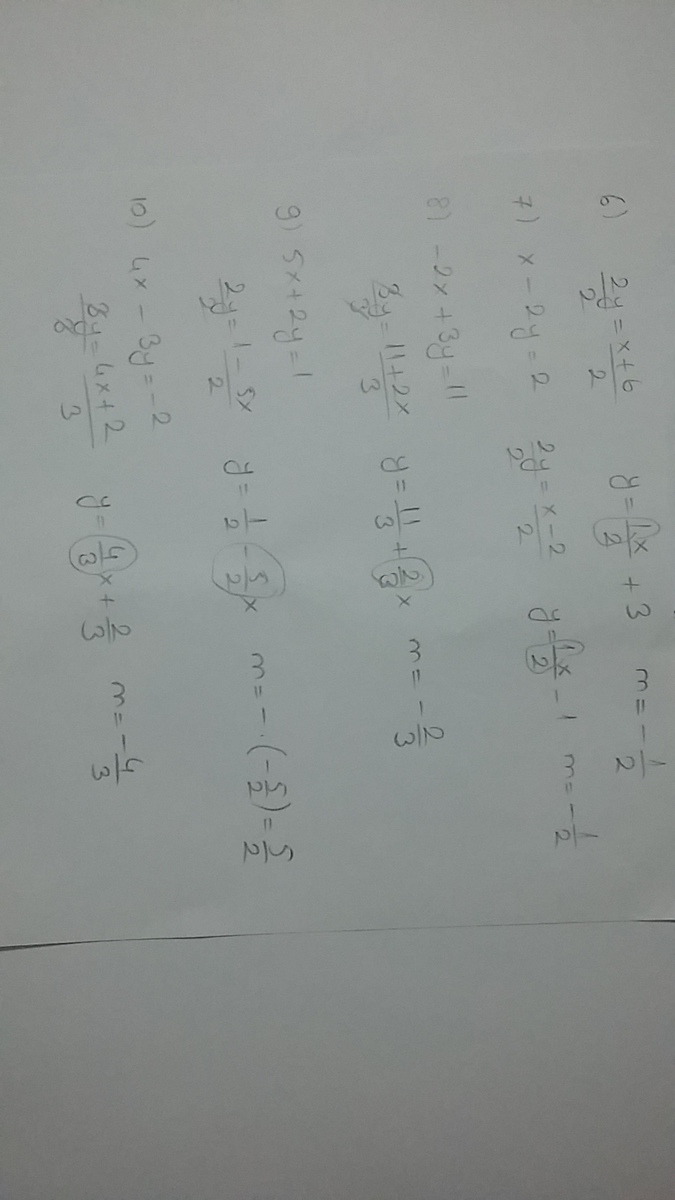 6) 2y/2 = x+6/2 y = 1/2x + 3 m = -1/2
7) x - 2y = 2 2y/2 = x-2/2 y = 1/2x - 1 m = -1/2
8) -2x + 3y = 11
3y/3 = 11+2x/3 y = 11/3 + 2/3x m = -2/3
9) 5x + 2y = 1
2y/2 = 1-5x/2 y = 1/2 - 5/2x m = -·(-5/2) = 5/2
10) 4x - 3y = -2
3y/3 = 4x+2/3 y = 4/3x + 2/3 m = -4/3